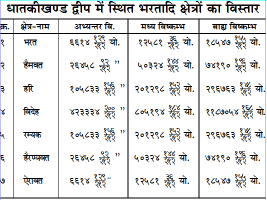 धातकीखण्ड द्वीप में स्थित भरतादि क्षेत्रों का विस्तार
क्र. क्षेत्र-नाम अभ्यन्तर वि. मध्य विष्कम्भ बाह्य विष्कम्भ
१ भरत ६६१४ १२९/२१२ यो. १२५८१ ३६/२१२ यो. १८५४७ १५५/२१२ यो.
२ हैमवत २६४५८ ९२/२१२ " ५०३२४ १४४/२१२ यो. ७४१९० १९६/२१२ यो.
३ हरि १०५८३३ १५६/२१२ यो. २०१२९८ १५२/२१२ यो. २९६७६३ १४८/२१२ यो.
४ विदेह ४२३३३४ २००/२१२ " ८०५१९४ १८४/२१२ यो. ११८७०५४ १६८/२१२ यो.
५ रम्यक १०५८३३ १५६/२१२ " २०१२९८ १५२/२१२ यो. २९६७६३ १४८/२१२ यो.
६ हैरण्यवत २६४५८ ९२/२१२ " ५०३२४ १४४/२१२ यो. ७४१९० १९६/२१२ यो.
७ ऐरावत ६६१४ १२९/२१२ " १२५८१ ३६/२१२ यो. १८५४७ १५५/२१२ यो.